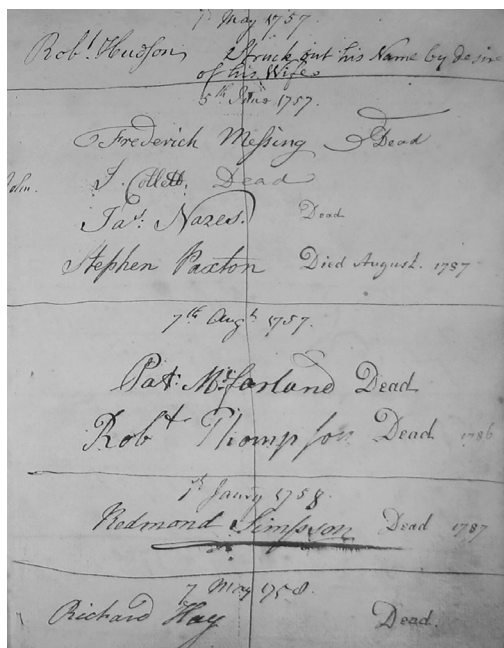 1st May 1757
Robt Hudson Struck out his Name by desire
of his Wife
5th June 1757.
Frederich Messing Dead
John. J. Collett. Dead
Jas. Nares. Dead
Stephen Paxton Died August. 1787
7th Augt 1757.
Pat: McFarland Dead
Robt Thompson Dead 1786
1st Janry 1758
Redmond Simpson Dead 1787
7 May 1758.
Richard Hay Dead.